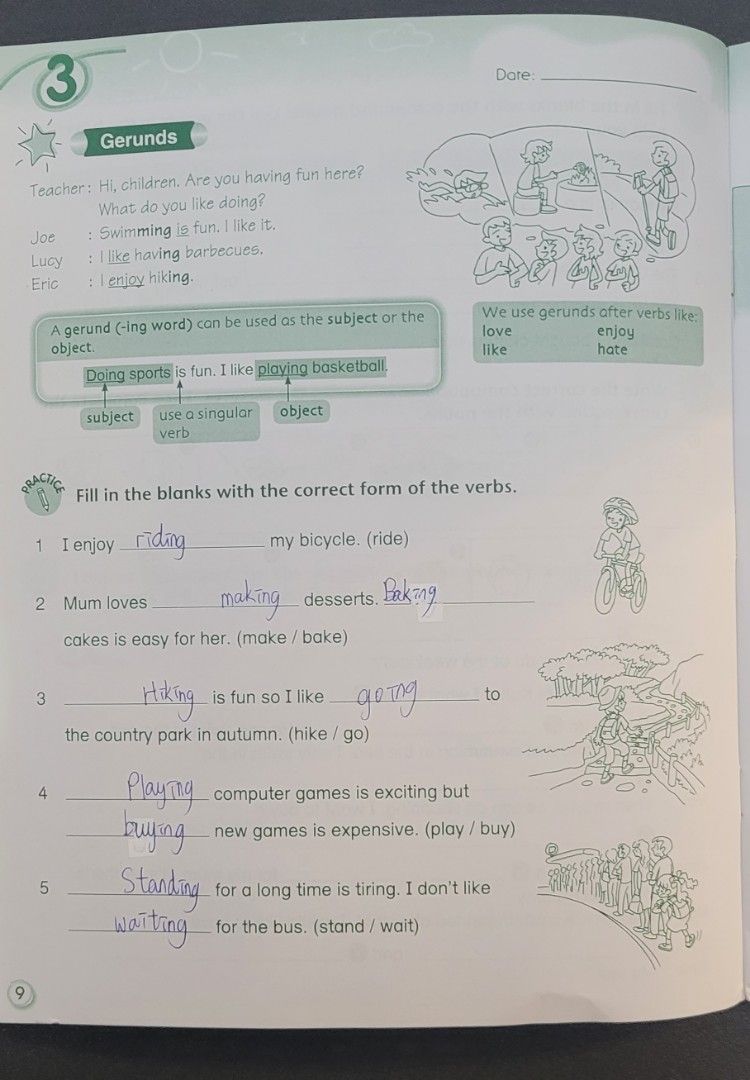 3
Date:
Gerunds
Teacher : Hi, children. Are you having fun here?
What do you like doing?
Joe : Swimming is fun. I like it.
Lucy : I like having barbecues.
Eric : I enjoy hiking.
A gerund (-ing word) can be used as the subject or the
object.
Doing sports is fun. I like playing basketball.
subject use a singular object
verb
We use gerunds after verbs like:
love enjoy
like hate
PRACTICE
Fill in the blanks with the correct form of the verbs.
1 I enjoy riding my bicycle. (ride)
2 Mum loves making desserts. Baking
cakes is easy for her. (make / bake)
3 Hiking is fun so I like going to
the country park in autumn. (hike / go)
4 Playing computer games is exciting but
buying new games is expensive. (play / buy)
5 Standing for a long time is tiring. I don't like
waiting for the bus. (stand / wait)
9